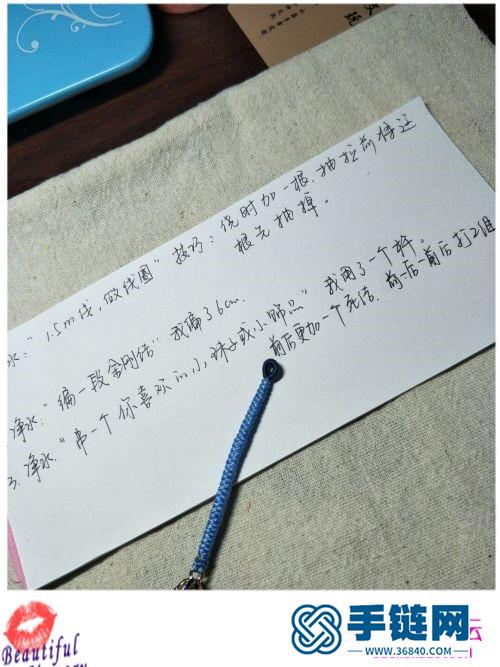 水:"1.5m线,做线圈"技巧:绕时加一根.抽拉前将这
根先抽掉。
净水:"编一段金刚结"我编了6cm.
3.净水."串一个你喜欢的小珠子或小饰品"我用了一个
前后更加一个死结.前一后一前后打2组
Beautiful
手链网
www.36840.com